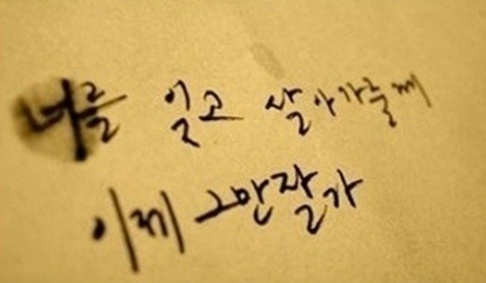 너를 잊고 살아가눌께
이제 그만 잘가